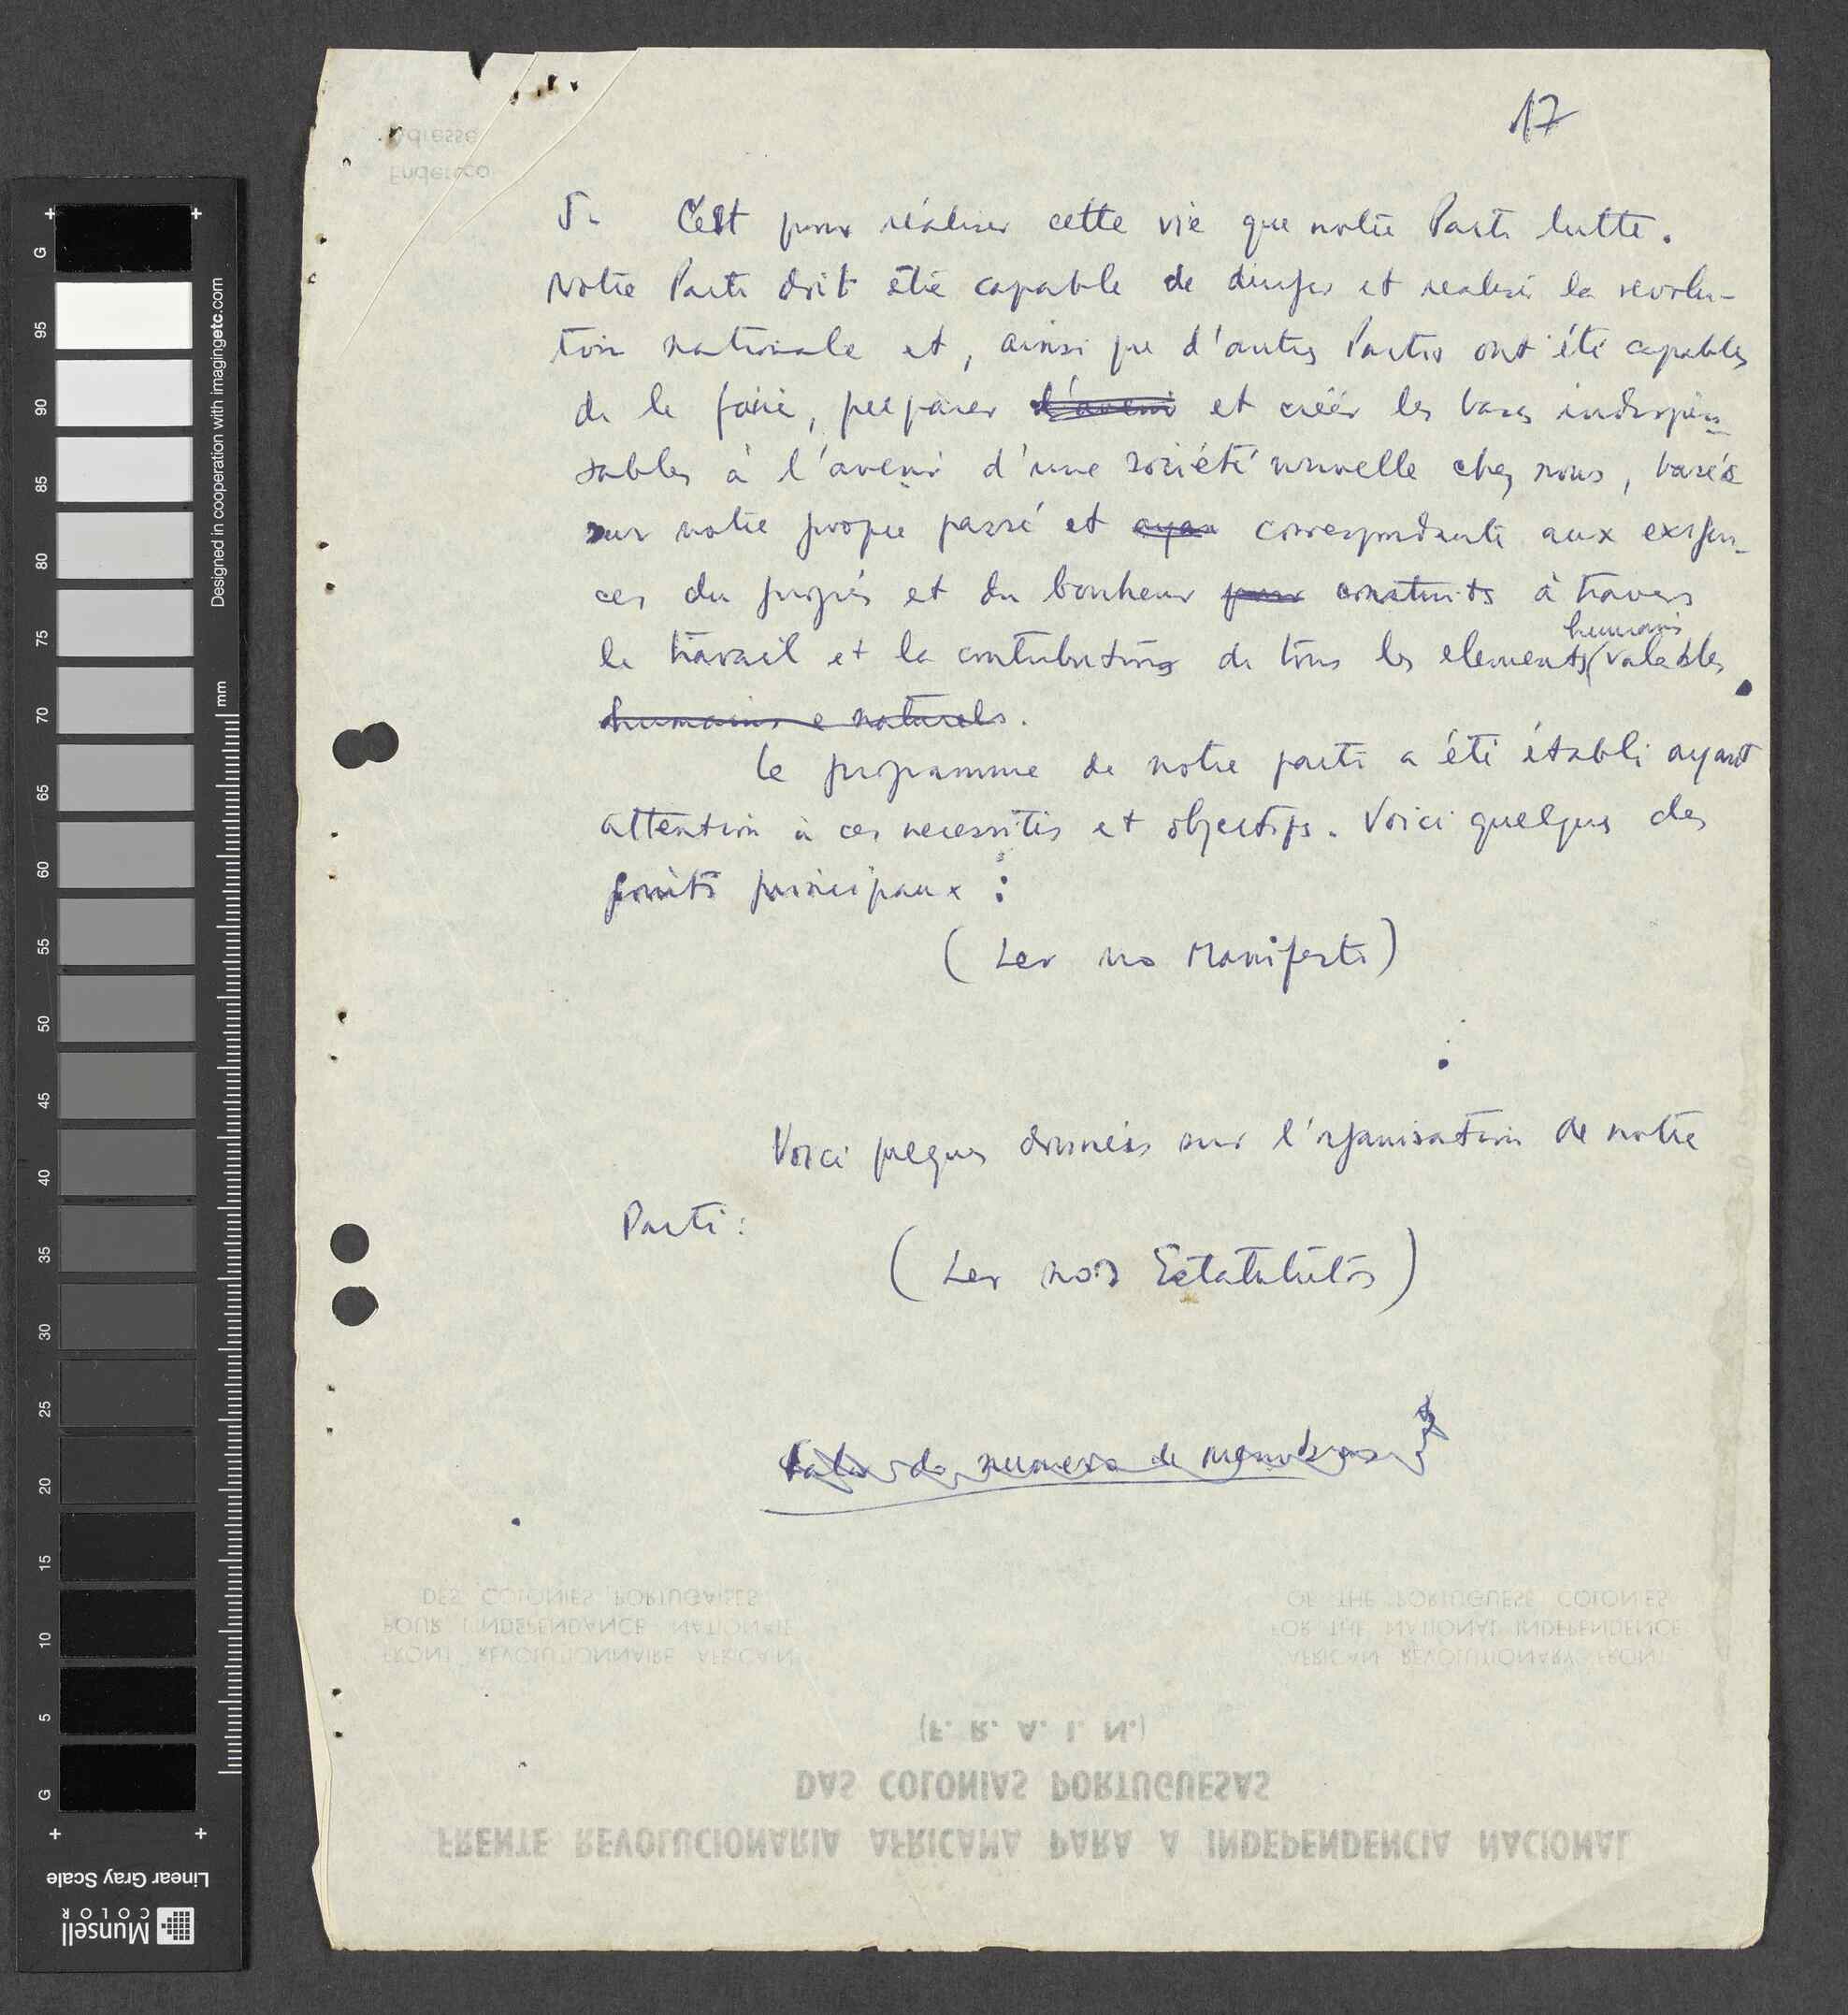 17
5- C'est pour réaliser cette vie que notre Parti lutte.
Notre Parti doit être capable de diriger et realiser la revolu-
tion nationale et, ainsi que d'autres Partis ont été capables
de le faire, preparer l'avenir et créer les bases indispen-
sables à l'avenir d'une société nouvelle chez nous, basée
sur notre propre passé et ayan correspondante aux exigen-
ces du progrès et du bonheur pour construits à travers
humains
le travail et la contribution de tous les elements valables
humains e naturels.
Le programme de notre parti a été établi ayant
attention à ces necessités et objectifs. Voici quelques des
points principaux :
(Ler no Manifesto)
Voici quelques données sur l'organisation de notre
Parti :
(Ler nos Estatutos)
do numero de membros
Adresse
Endereço
DES COLONIES PORTUGAISES
POUR L'INDEPENDANCE NATIONALE
FRONT REVOLUTIONNAIRE AFRICAIN
OF THE PORTUGUESE COLONIES
FOR THE NATIONAL INDEPENDENCE
AFRICAN REVOLUTIONARY FRONT
(F. R. A. I. N.)
DAS COLONIAS PORTUGUESAS
FRENTE REVOLUCIONARIA AFRICANA PARA A INDEPENDENCIA NACIONAL
G
95
90
85
80
75
70
65
60
55
50
45
40
35
30
25
20
15
10
5
G
mm
Designed in cooperation with imagingetc.com
Linear Gray Scale
Munsell
COLOR